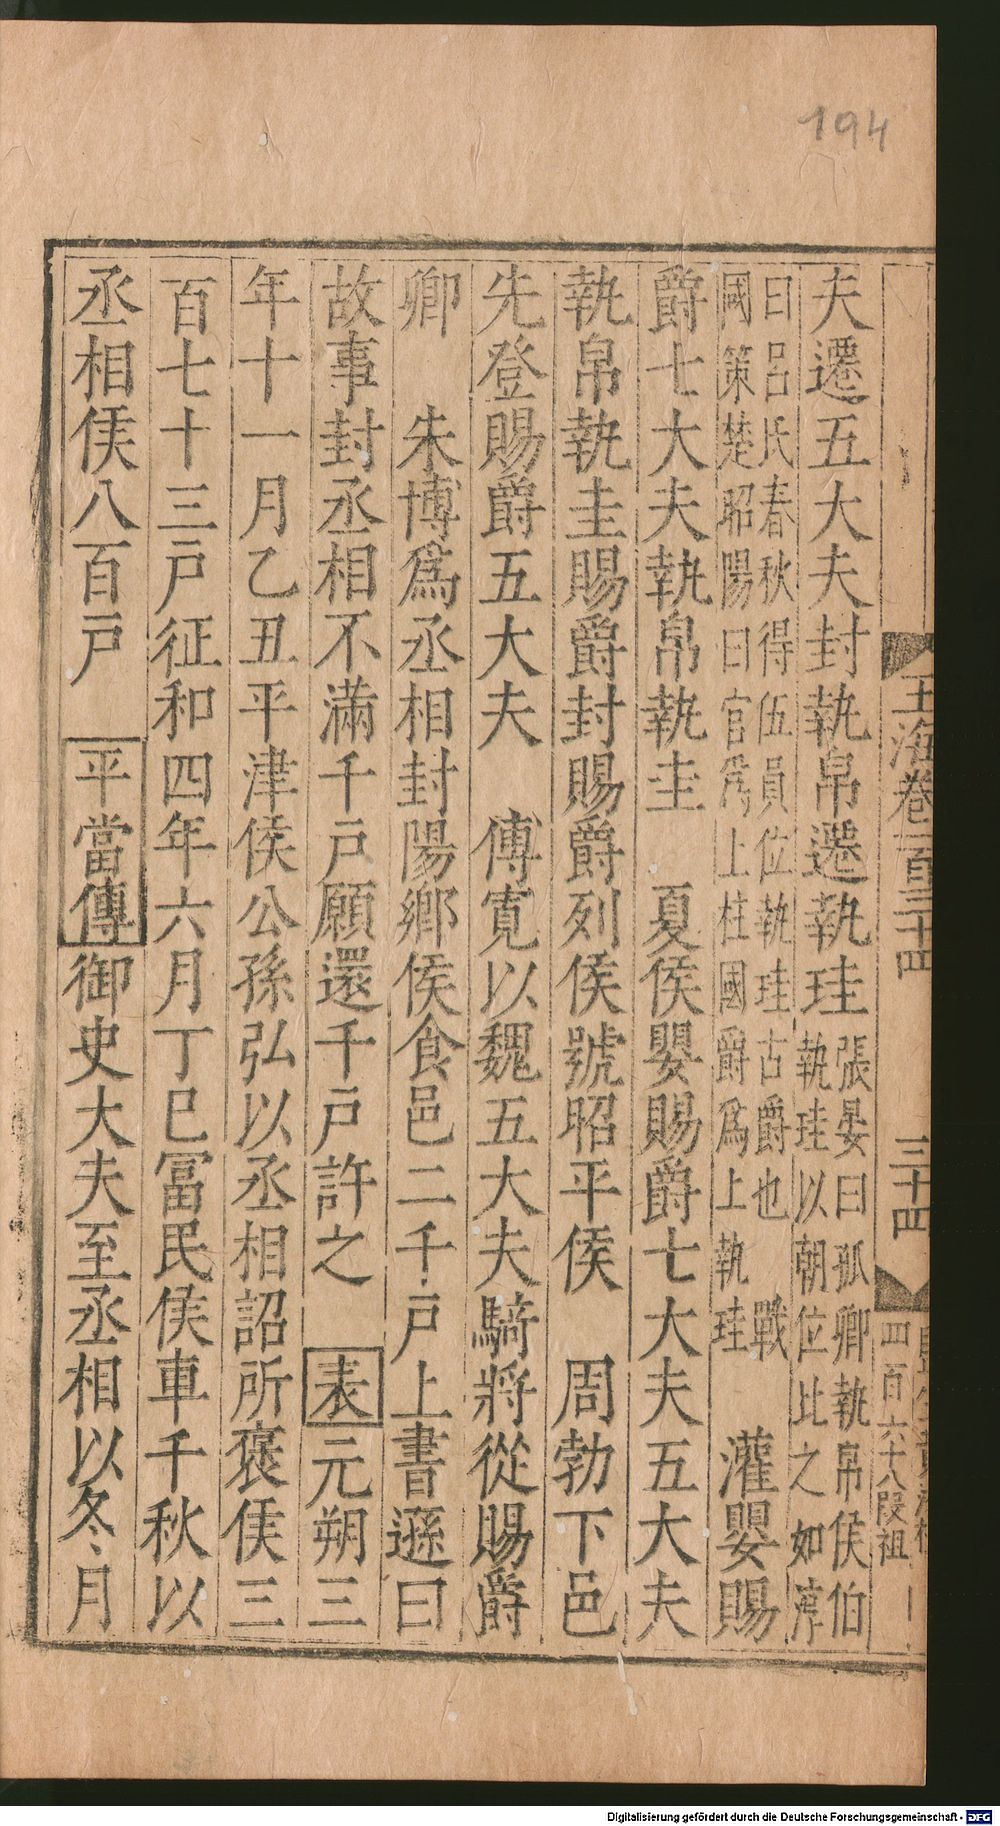 194
玉海卷一百三十四
三十四
四百六十八段祖
夫遷五大夫封執帛遷執珪張晏曰孤卿執帛侯伯
執珪以朝位比之如淳
曰呂氏春秋得伍員位執珪古爵也戰
國策楚昭陽曰官爲上柱國爵爲上執珪灌嬰賜
爵七大夫執帛執圭 夏侯嬰賜爵七大夫五大夫
執帛執圭賜爵封賜爵列侯號昭平侯 周勃下邑
先登賜爵五大夫 傅寬以魏五大夫騎將從賜爵
卿 朱博爲丞相封陽鄉侯食邑二千戶上書遜曰
故事封丞相不滿千戶願還千戶許之 表元朔三
年十一月乙丑平津侯公孫弘以丞相詔所褒侯三
百七十三戶征和四年六月丁巳冨民侯車千秋以
丞相侯八百戶 平當傳御史大夫至丞相以冬月
Digitalisierung gefördert durch die Deutsche Forschungsgemeinschaft - DFG